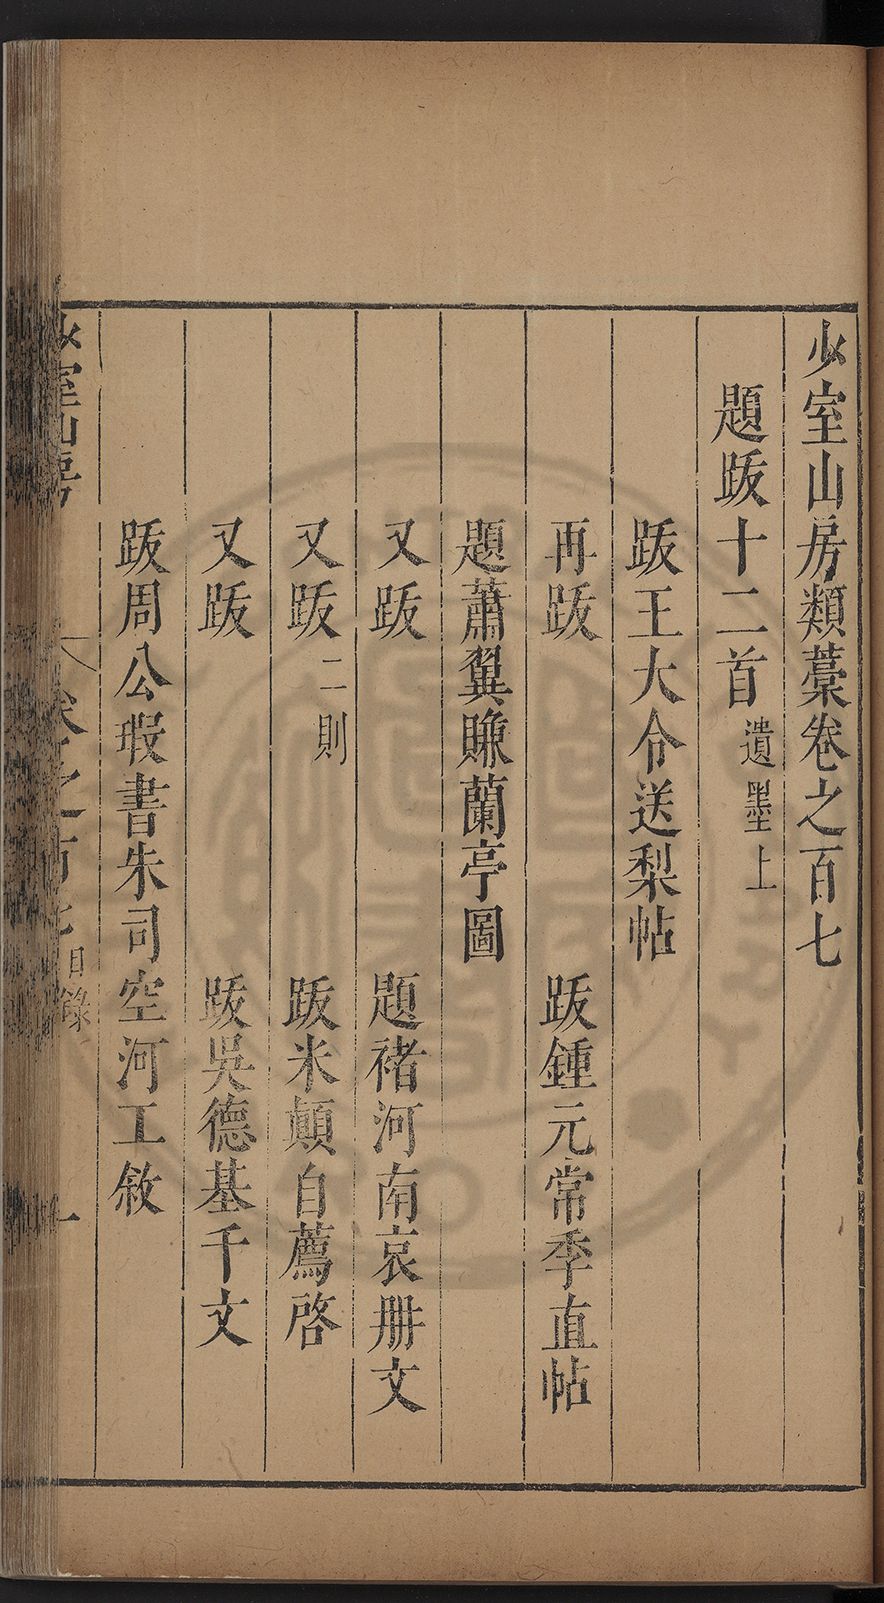 少室山房類藁卷之百七
題跋十二首 遺墨上
跋王大令送梨帖
再跋 跋鍾元常季直帖
題蕭翼賺蘭亭圖
又跋 題褚河南哀冊文
又跋 二則 跋米顛自薦啓
又跋 跋吳德基千文
跋周公瑕書朱司空河工敘
少室山房 卷之百七 目錄 一